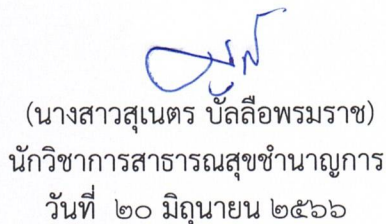 (นางสาวสุเนตร บัลลือพรมราช)
นักวิชาการสาธารณสุขชำนาญการ
วันที่ ๒๐ มิถุนายน ๒๕๖๖